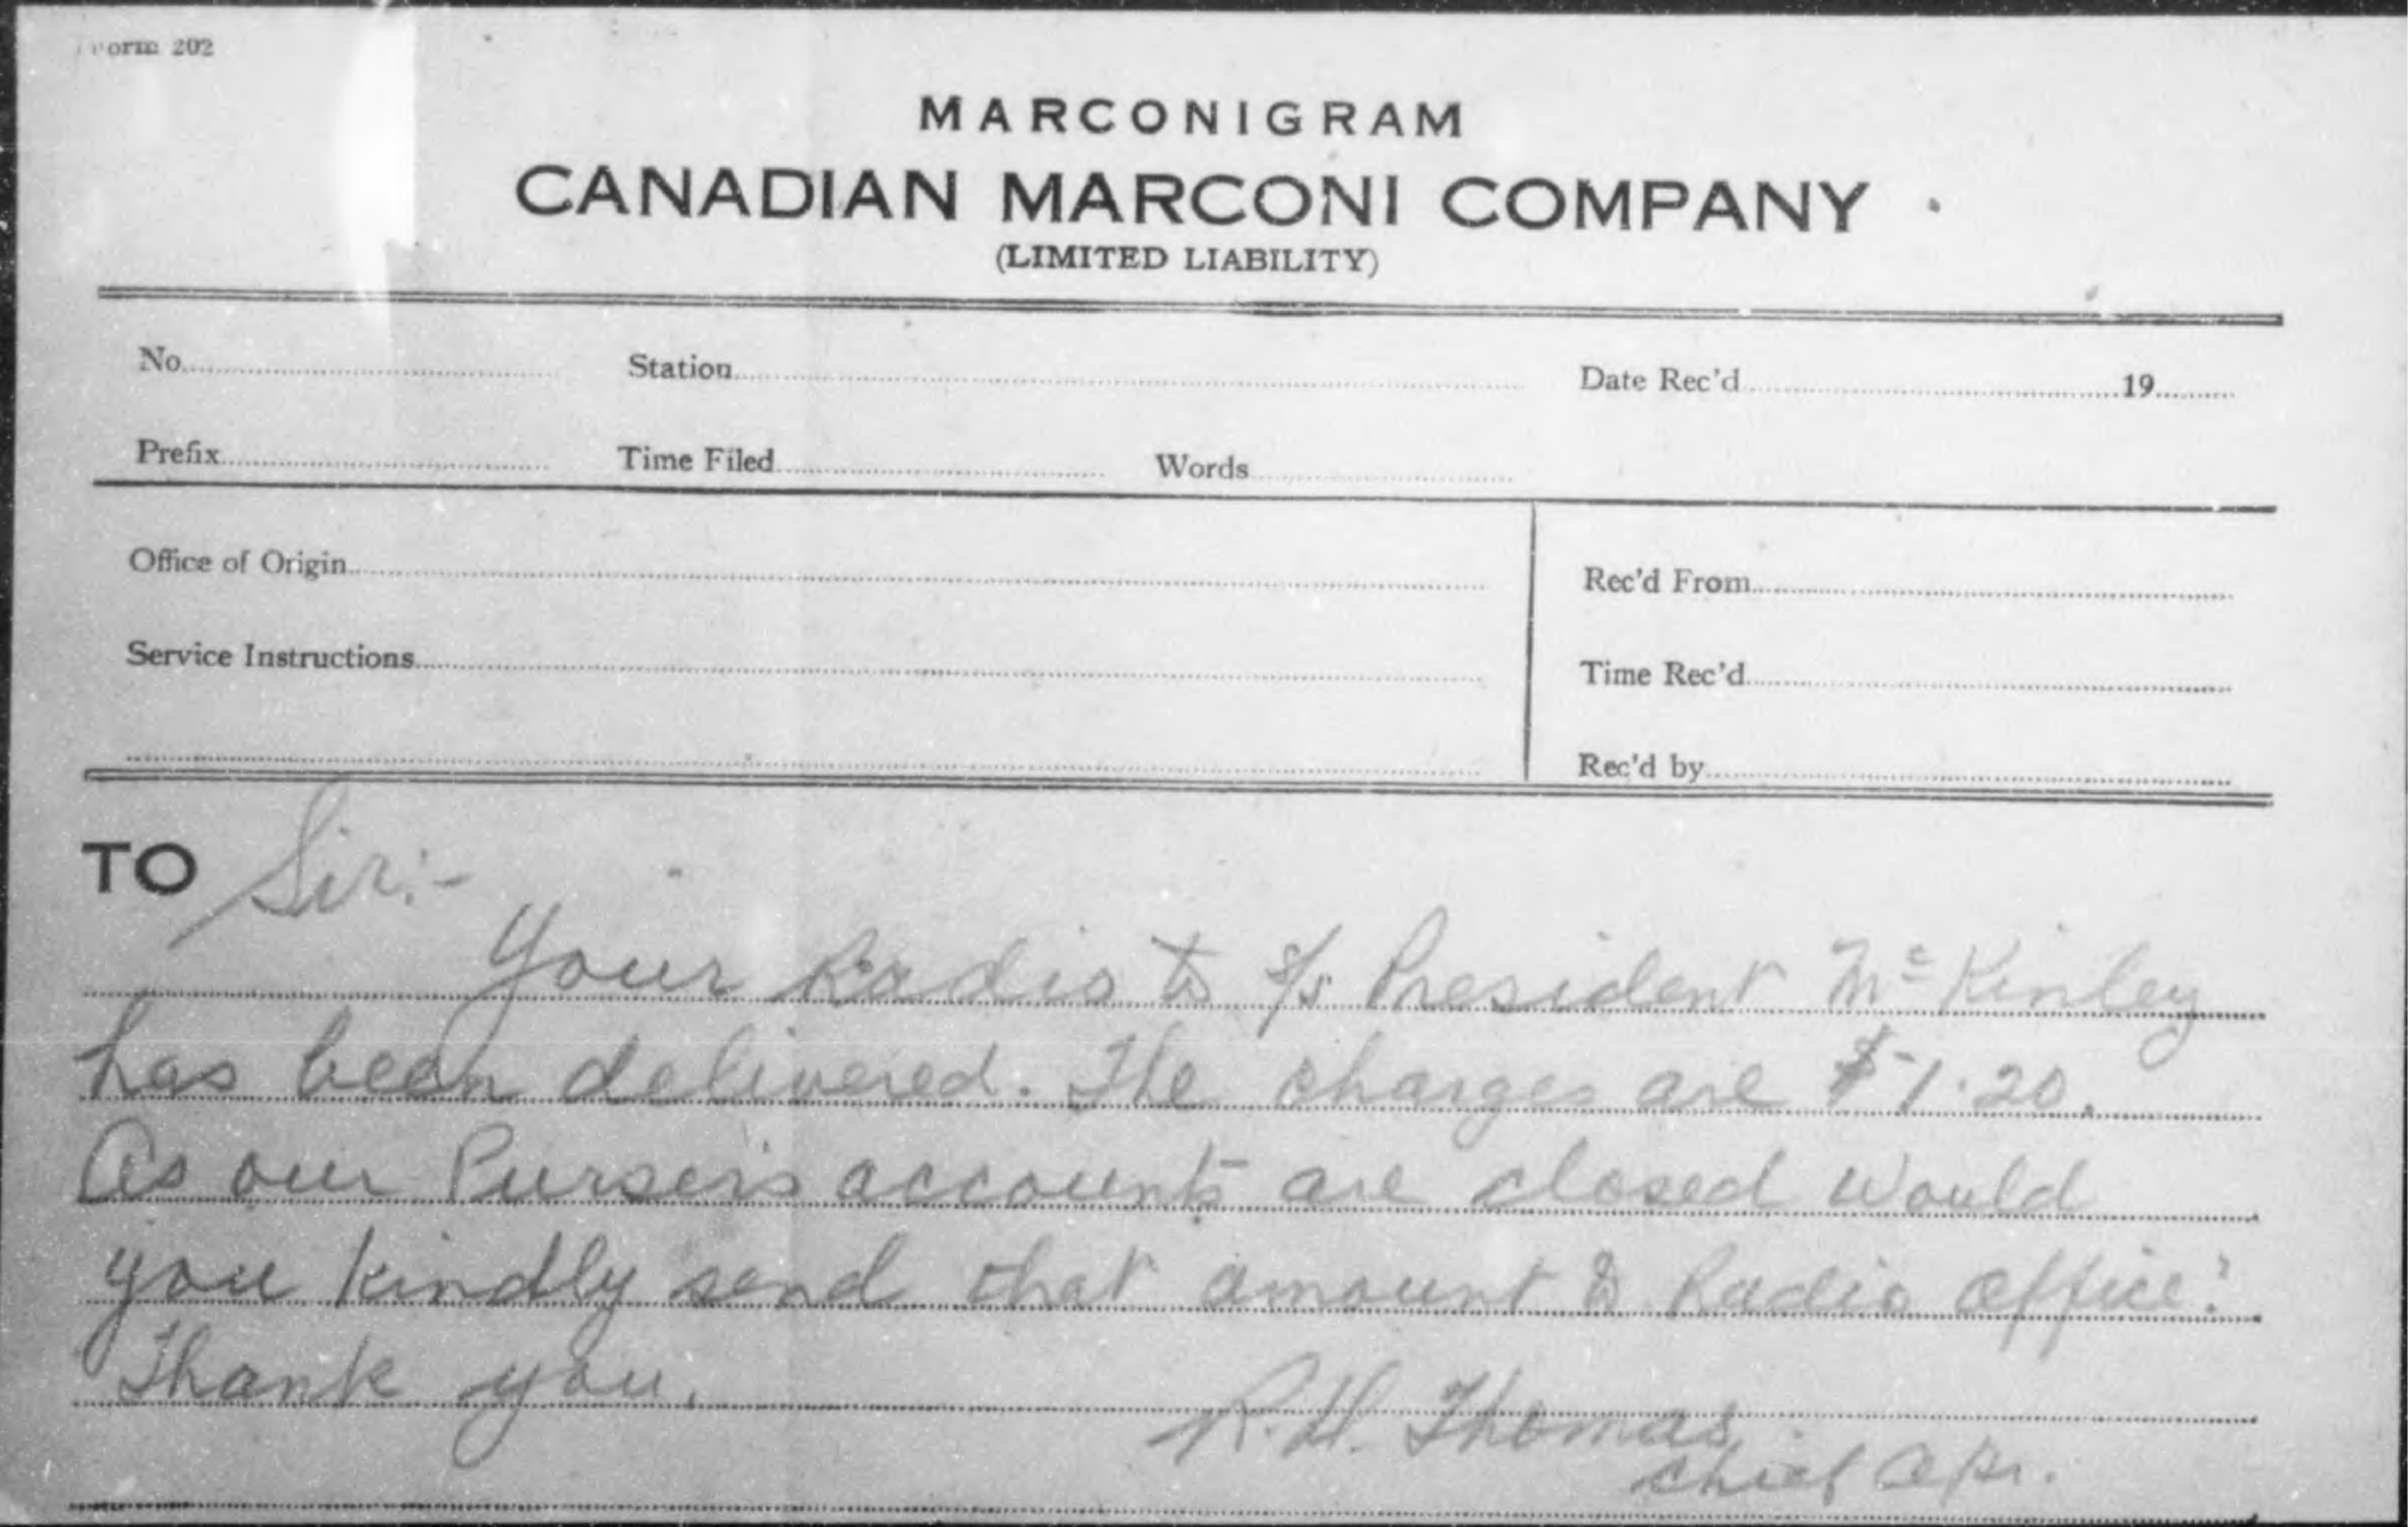 Form 202
MARCONIGRAM
CANADIAN MARCONI COMPANY
(LIMITED LIABILITY)
No. Station Date Rec'd 19
Prefix Time Filed Words
Office of Origin Rec'd From
Service Instructions Time Rec'd
Rec'd by
TO Sir:-
Your Radio to s/s President McKinley
has been delivered. The charges are $1.20.
As our Purser's accounts are closed would
you kindly send that amount to Radio Office?
Thank you.
R.H. Thomas
Chief Opr.